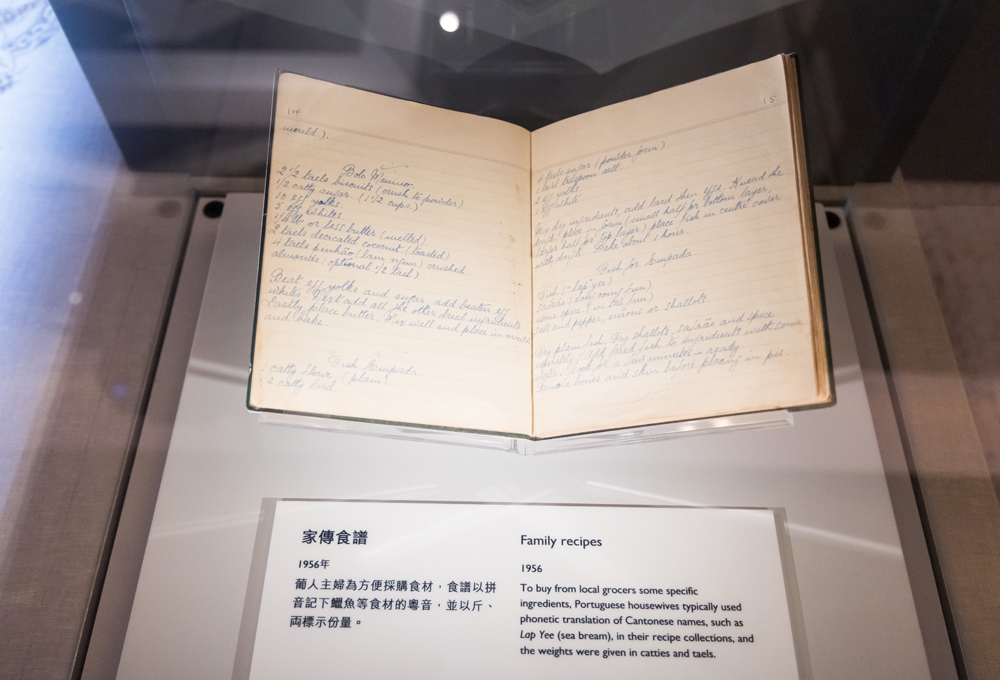 14
mould).
Bolo Menino
2 1/2 taels biscuits (crush to powder)
1/2 catty sugar. (1 1/2 cups)
10 egg yolks.
egg whites
1/4 lb or less butter (melted)
2 taels decicated coconut (toasted)
4 taels pinhão (lam yan) crushed
almonds (optional 1/2 tael)
Beat egg yolks and sugar, add beaten egg
whites, add all the other dried ingredients
Lastly place butter. Mix well and place in mould
and bake.
Fish Empada
catty flour (plain)
1/2 catty lard
15
4 taels sugar (powder form)
1 level teaspoon salt
egg yolks
egg white
Mix dry ingredients, add lard then eggs. Knead the
dough, place in form (small half for bottom layer,
larger half for top layer) place fish in centre cover
with dough. Bake about 1 hour.
Fish for Empada
Fish (- lap yee)
salt and pepper, onions or shallots
Fry plain fish. Fry shallots, and spice
separately. Add fried fish to ingredients with some
few minutes - ready
bones and skin before placing in pie.
家傳食譜
1956年
葡人主婦為方便採購食材，食譜以拼
音記下鱲魚等食材的粵音，並以斤、
両標示份量。
Family recipes
1956
To buy from local grocers some specific
ingredients, Portuguese housewives typically used
phonetic translation of Cantonese names, such as
Lap Yee (sea bream), in their recipe collections, and
the weights were given in catties and taels.